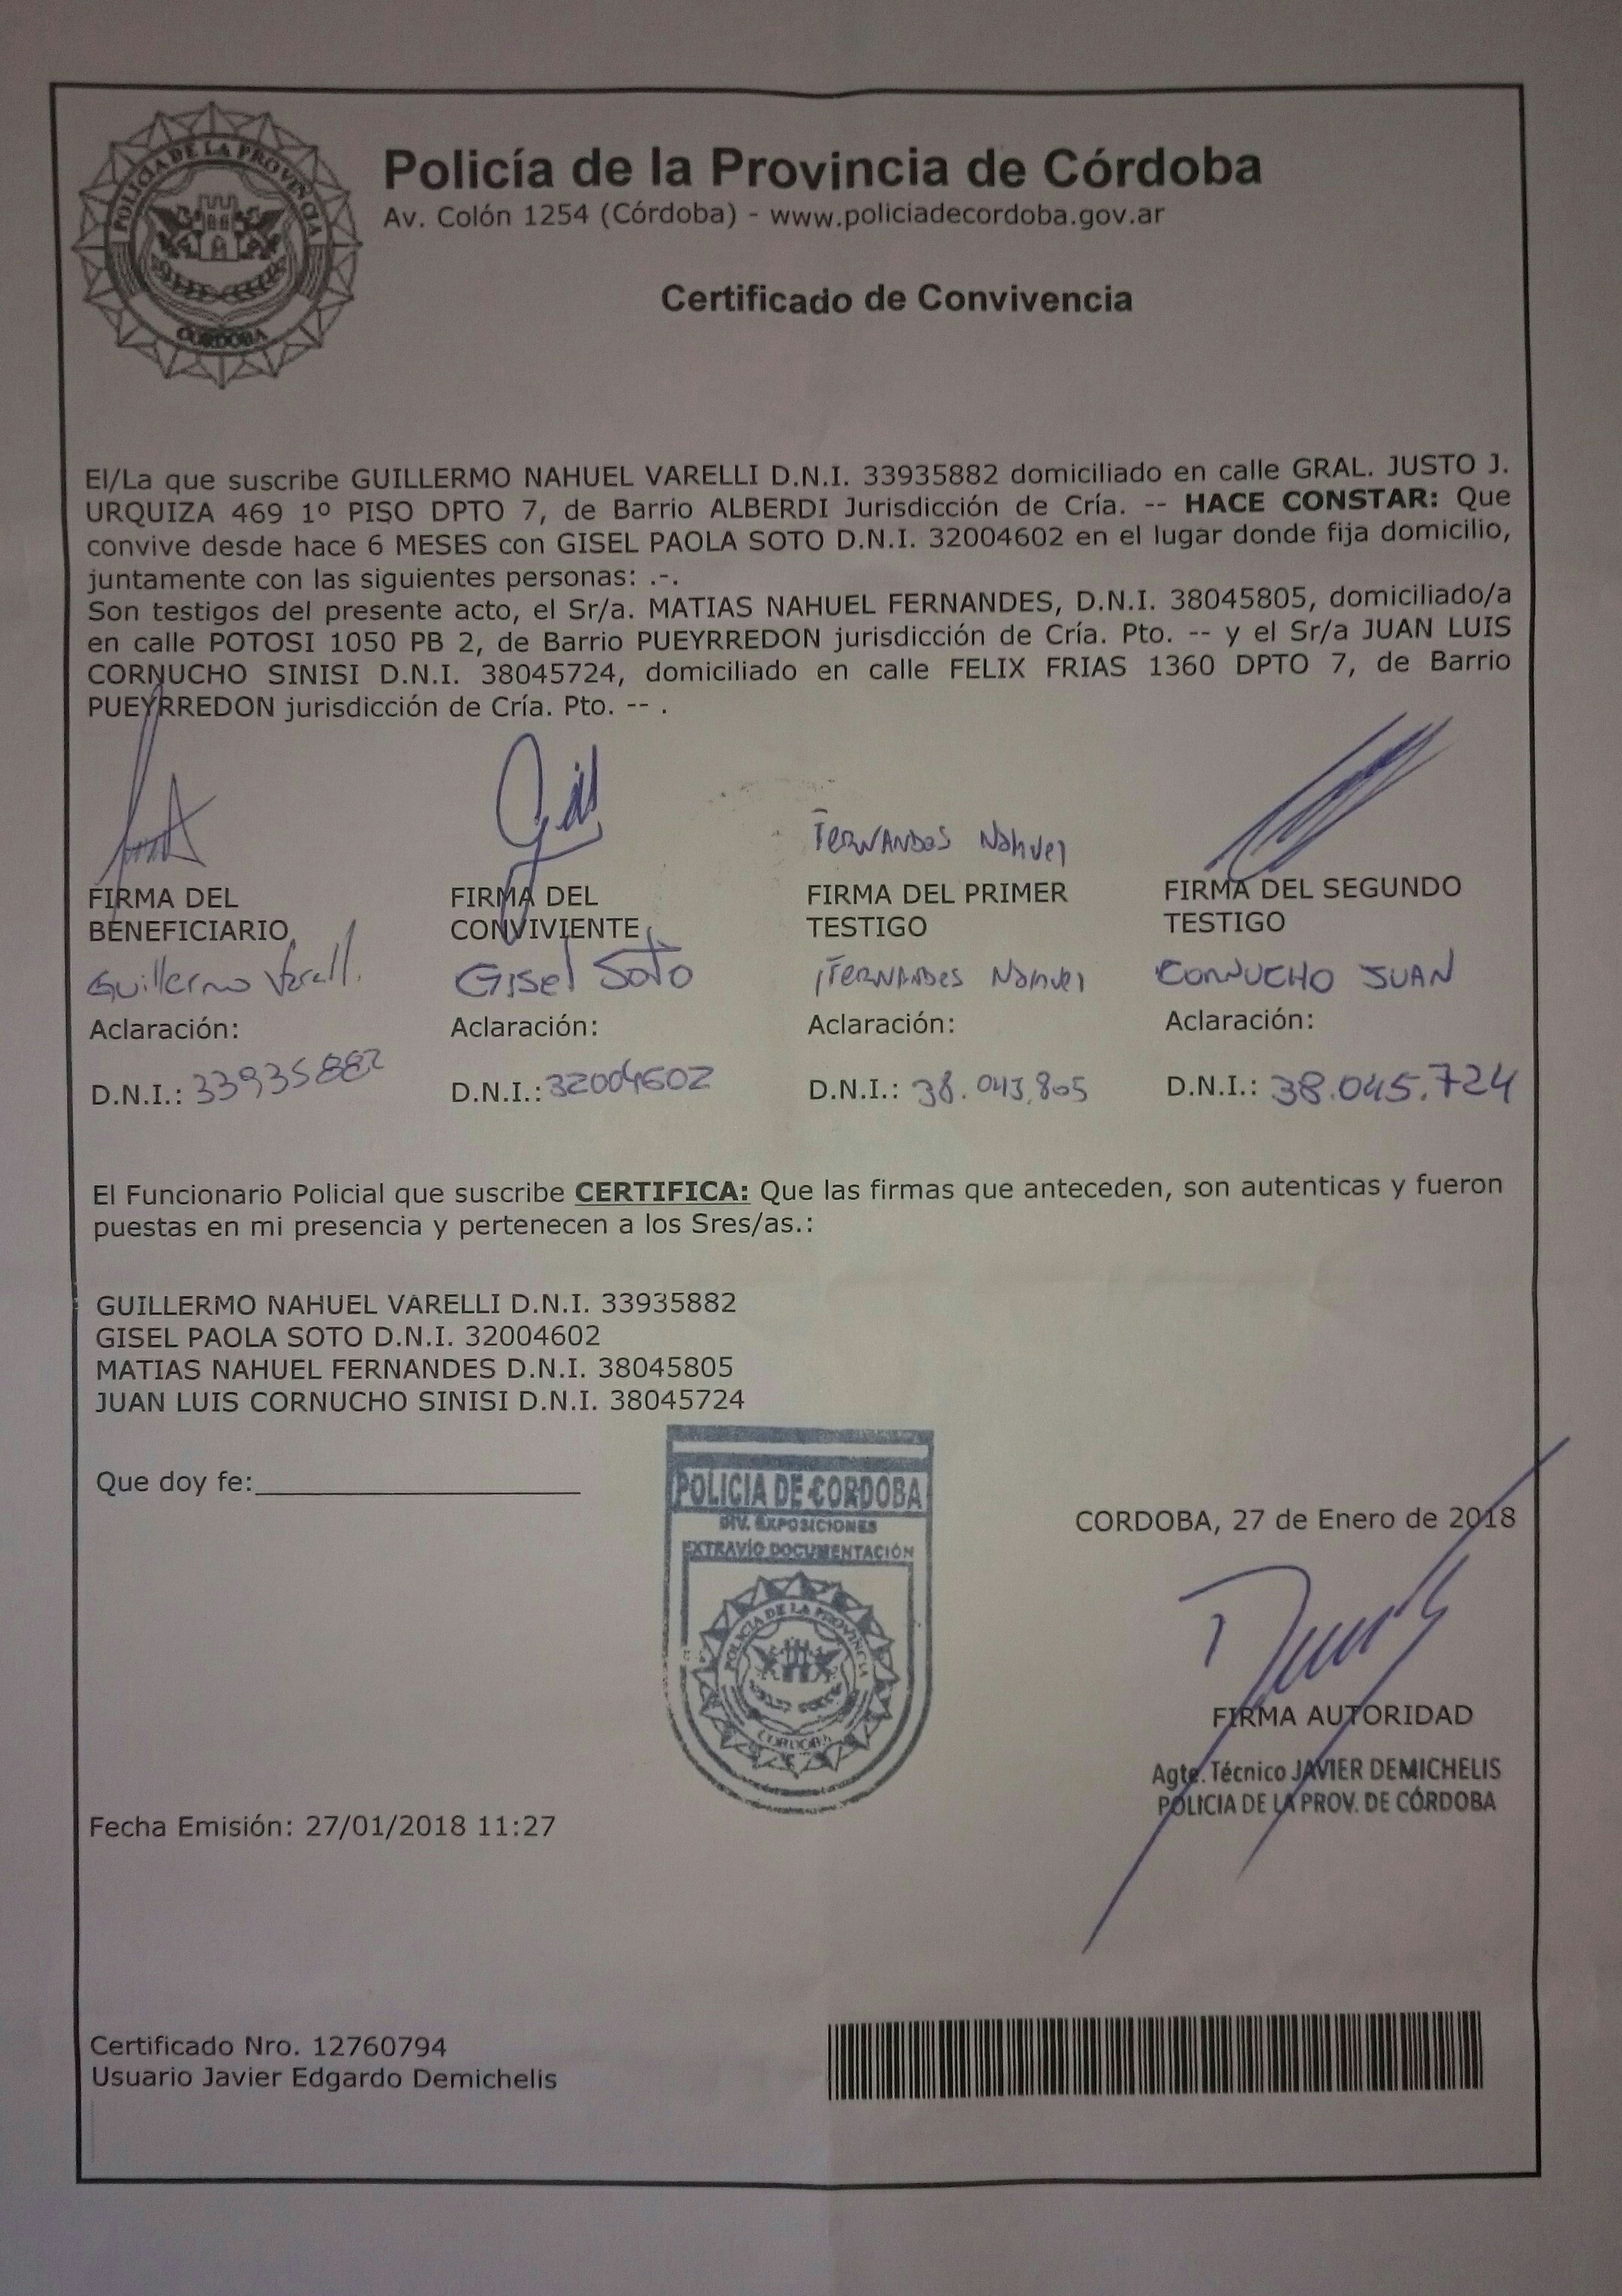 POLICIA DE LA PROVINCIA
CORDOBA
Policía de la Provincia de Córdoba
Av. Colón 1254 (Córdoba) - www.policiadecordoba.gov.ar
Certificado de Convivencia
El/La que suscribe GUILLERMO NAHUEL VARELLI D.N.I. 33935882 domiciliado en calle GRAL. JUSTO J.
URQUIZA 469 1º PISO DPTO 7, de Barrio ALBERDI Jurisdicción de Cría. -- HACE CONSTAR: Que
convive desde hace 6 MESES con GISEL PAOLA SOTO D.N.I. 32004602 en el lugar donde fija domicilio,
juntamente con las siguientes personas: .-.
Son testigos del presente acto, el Sr/a. MATIAS NAHUEL FERNANDES, D.N.I. 38045805, domiciliado/a
en calle POTOSI 1050 PB 2, de Barrio PUEYRREDON jurisdicción de Cría. Pto. -- y el Sr/a JUAN LUIS
CORNUCHO SINISI D.N.I. 38045724, domiciliado en calle FELIX FRIAS 1360 DPTO 7, de Barrio
PUEYRREDON jurisdicción de Cría. Pto. -- .
FERNANDES Nahuel
FIRMA DEL BENEFICIARIO
FIRMA DEL CONVIVIENTE
FIRMA DEL PRIMER TESTIGO
FIRMA DEL SEGUNDO TESTIGO
Guillermo Varelli
Gisel Soto
FERNANDES Nahuel
CORNUCHO JUAN
Aclaración:
Aclaración:
Aclaración:
Aclaración:
D.N.I.: 33935882
D.N.I.: 32004602
D.N.I.: 38.043.805
D.N.I.: 38.045.724
El Funcionario Policial que suscribe CERTIFICA: Que las firmas que anteceden, son autenticas y fueron
puestas en mi presencia y pertenecen a los Sres/as.:
GUILLERMO NAHUEL VARELLI D.N.I. 33935882
GISEL PAOLA SOTO D.N.I. 32004602
MATIAS NAHUEL FERNANDES D.N.I. 38045805
JUAN LUIS CORNUCHO SINISI D.N.I. 38045724
Que doy fe:
POLICIA DE CORDOBA
DIV. EXPOSICIONES
EXTRAVÍO DOCUMENTACIÓN
POLICIA DE LA PROVINCIA
CORDOBA
CORDOBA, 27 de Enero de 2018
FIRMA AUTORIDAD
Agte. Técnico JAVIER DEMICHELIS
POLICIA DE LA PROV. DE CÓRDOBA
Fecha Emisión: 27/01/2018 11:27
Certificado Nro. 12760794
Usuario Javier Edgardo Demichelis